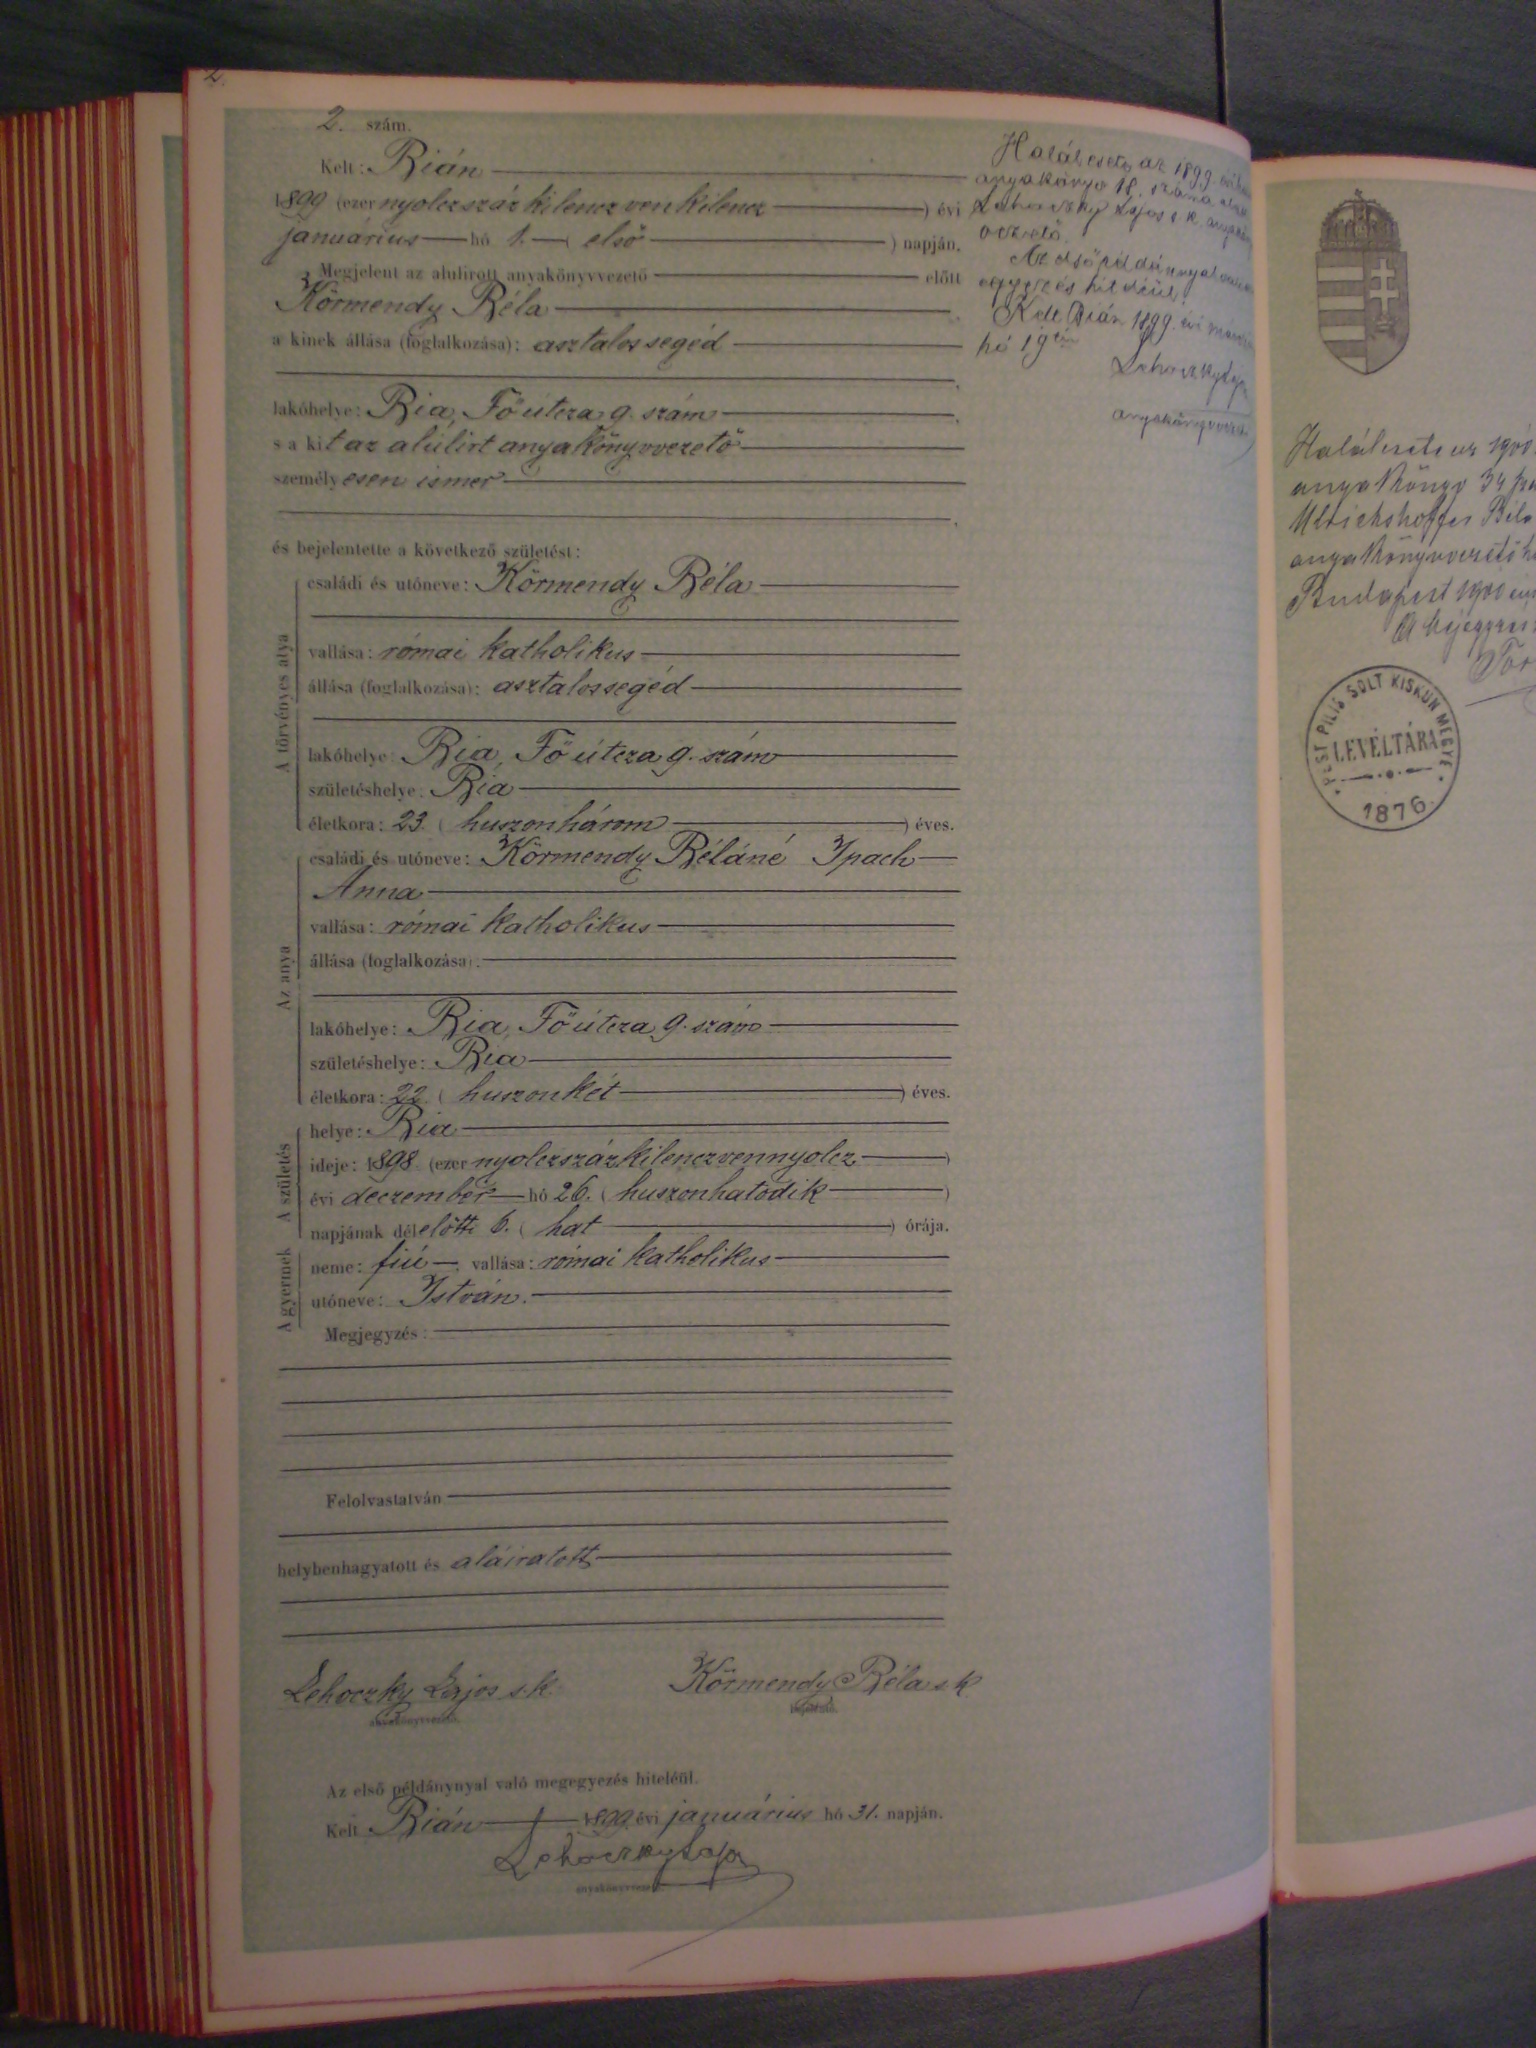 2.
2. szám.
Kelt: Bián
1899 (ezer nyolczszáz kilenczven kilencz ) évi
januárius hó 1. ( első ) napján.
Megjelent az alulirott anyakönyvvezető előtt
Körmendy Béla
a kinek állása (foglalkozása): asztalos segéd
lakóhelye: Bia, Fő útcza 9. szám
s a kit az alúlirt anyakönyvvezető
személyesen ismer
és bejelentette a következő születést:
A törvényes atya
családi és utóneve: Körmendy Béla
vallása: római katholikus
állása (foglalkozása): asztalossegéd
lakóhelye: Bia, Fő útcza 9. szám
születéshelye: Bia
életkora: 23. ( huszonhárom ) éves.
Az anya
családi és utóneve: Körmendy Béláné Ipach
Anna
vallása: római katholikus
állása (foglalkozása):
lakóhelye: Bia, Fő útcza 9. szám
születéshelye: Bia
életkora: 22. ( huszonkét ) éves.
A születés
helye: Bia
ideje: 1898. (ezer nyolczszázkilenczvennyolcz )
évi deczember hó 26. ( huszonhatodik )
napjának délelőtti 6. ( hat ) órája.
A gyermek
neme: fiú, vallása: római katholikus
utóneve: István.
Megjegyzés:
Felolvastatván
helybenhagyatott és aláiratott
Lehoczky Lajos s.k. Körmendy Béla s.k.
anyakönyvvezető. bejelentő.
Az első példánynyal való megegyezés hiteléül.
Kelt Bián 1899. évi januárius hó 31. napján.
Lehoczky Lajos
anyakönyvvezető.
Haláleset az 1899. évi
anyakönyv 18. száma alatt
Lehoczky Lajos s.k. anyakönyv
vezető.
Az első példánnyal való
egyezés hiteléül.
Kelt Bián 1899. évi
hó 19én
Lehoczky Lajos
anyakönyvvezető
Halálesete az 1900.
anyakönyv 34
Ulrichshoffer Béla
anyakönyvvezető
Budapest 1900
PEST PILIS SOLT KISKUN MEGYE
LEVÉLTÁRA
1876